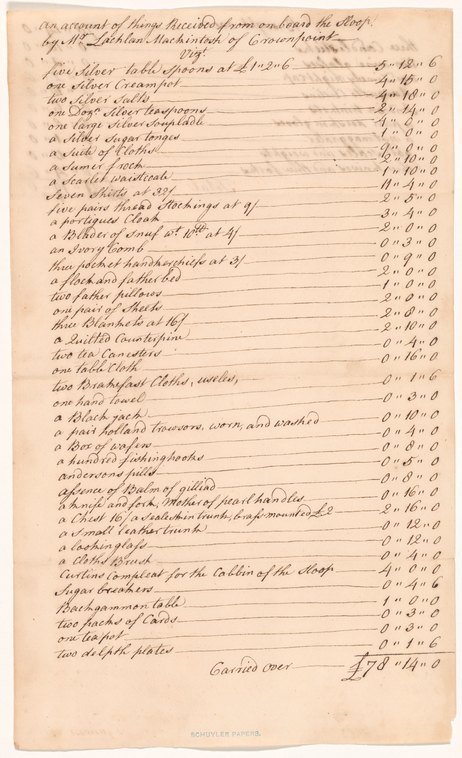 an account of things Received from on board the Sloop
by Mr. Lachlan Mackintosh of Crownpoint
Vizt.
five Silver table Spoons at £1"2"6 5"12"6
one Silver Creampot 4"15"0
two Silver Salts 4"18"0
one Dozn. Silver teaspoons 2"14"0
one large Silver Soupladle 4"0"0
a Silver Sugar tonges 1"0"0
a Suite of Cloths 9"0"0
a sumer frock 2"10"0
a Scarlet waistcoate 1"10"0
Seven Shirts at 32/ 11"4"0
five pairs thread Stockings at 9/ 2"5"0
a portigues Cloak 3"4"0
a Blader of Snuf wt. 10 at 4/ 2"0"0
an Ivory Comb 0"3"0
three pocket handkerchiefs at 3/ 0"9"0
a flock and father bed 2"0"0
two father pillows 1"0"0
one pair of Sheets 2"0"0
three Blankets at 16/ 2"8"0
a Quilted Counterpine 2"10"0
two tea Canesters 0"4"0
one table Cloth 0"16"0
two Brakefast Cloths, useles, 0"1"6
one hand towel 0"3"0
a Black jack 0"10"0
a pair holland trowsors, worn, and washed 0"4"0
a Box of wafers 0"8"0
a hundred fishinghooks 0"5"0
andersons pills 0"8"0
assence of Balm of gilliad 0"16"0
a knife and fork, Mother of pearl handles 2"16"0
a Chest 16/ a Sealeskin trunk, brass mounted £2
a small leather trunk 0"12"0
a lookinglass 0"12"0
a Cloths Brush 0"4"0
Curtins Compleat for the Cabbin of the Sloop 4"0"0
Sugar breakers 0"4"6
Backgammon table 1"0"0
two packs of Cards 0"3"0
one teapot 0"3"0
two delpth plates 0"1"6
Carried over £78"14"0
SCHUYLER PAPERS.